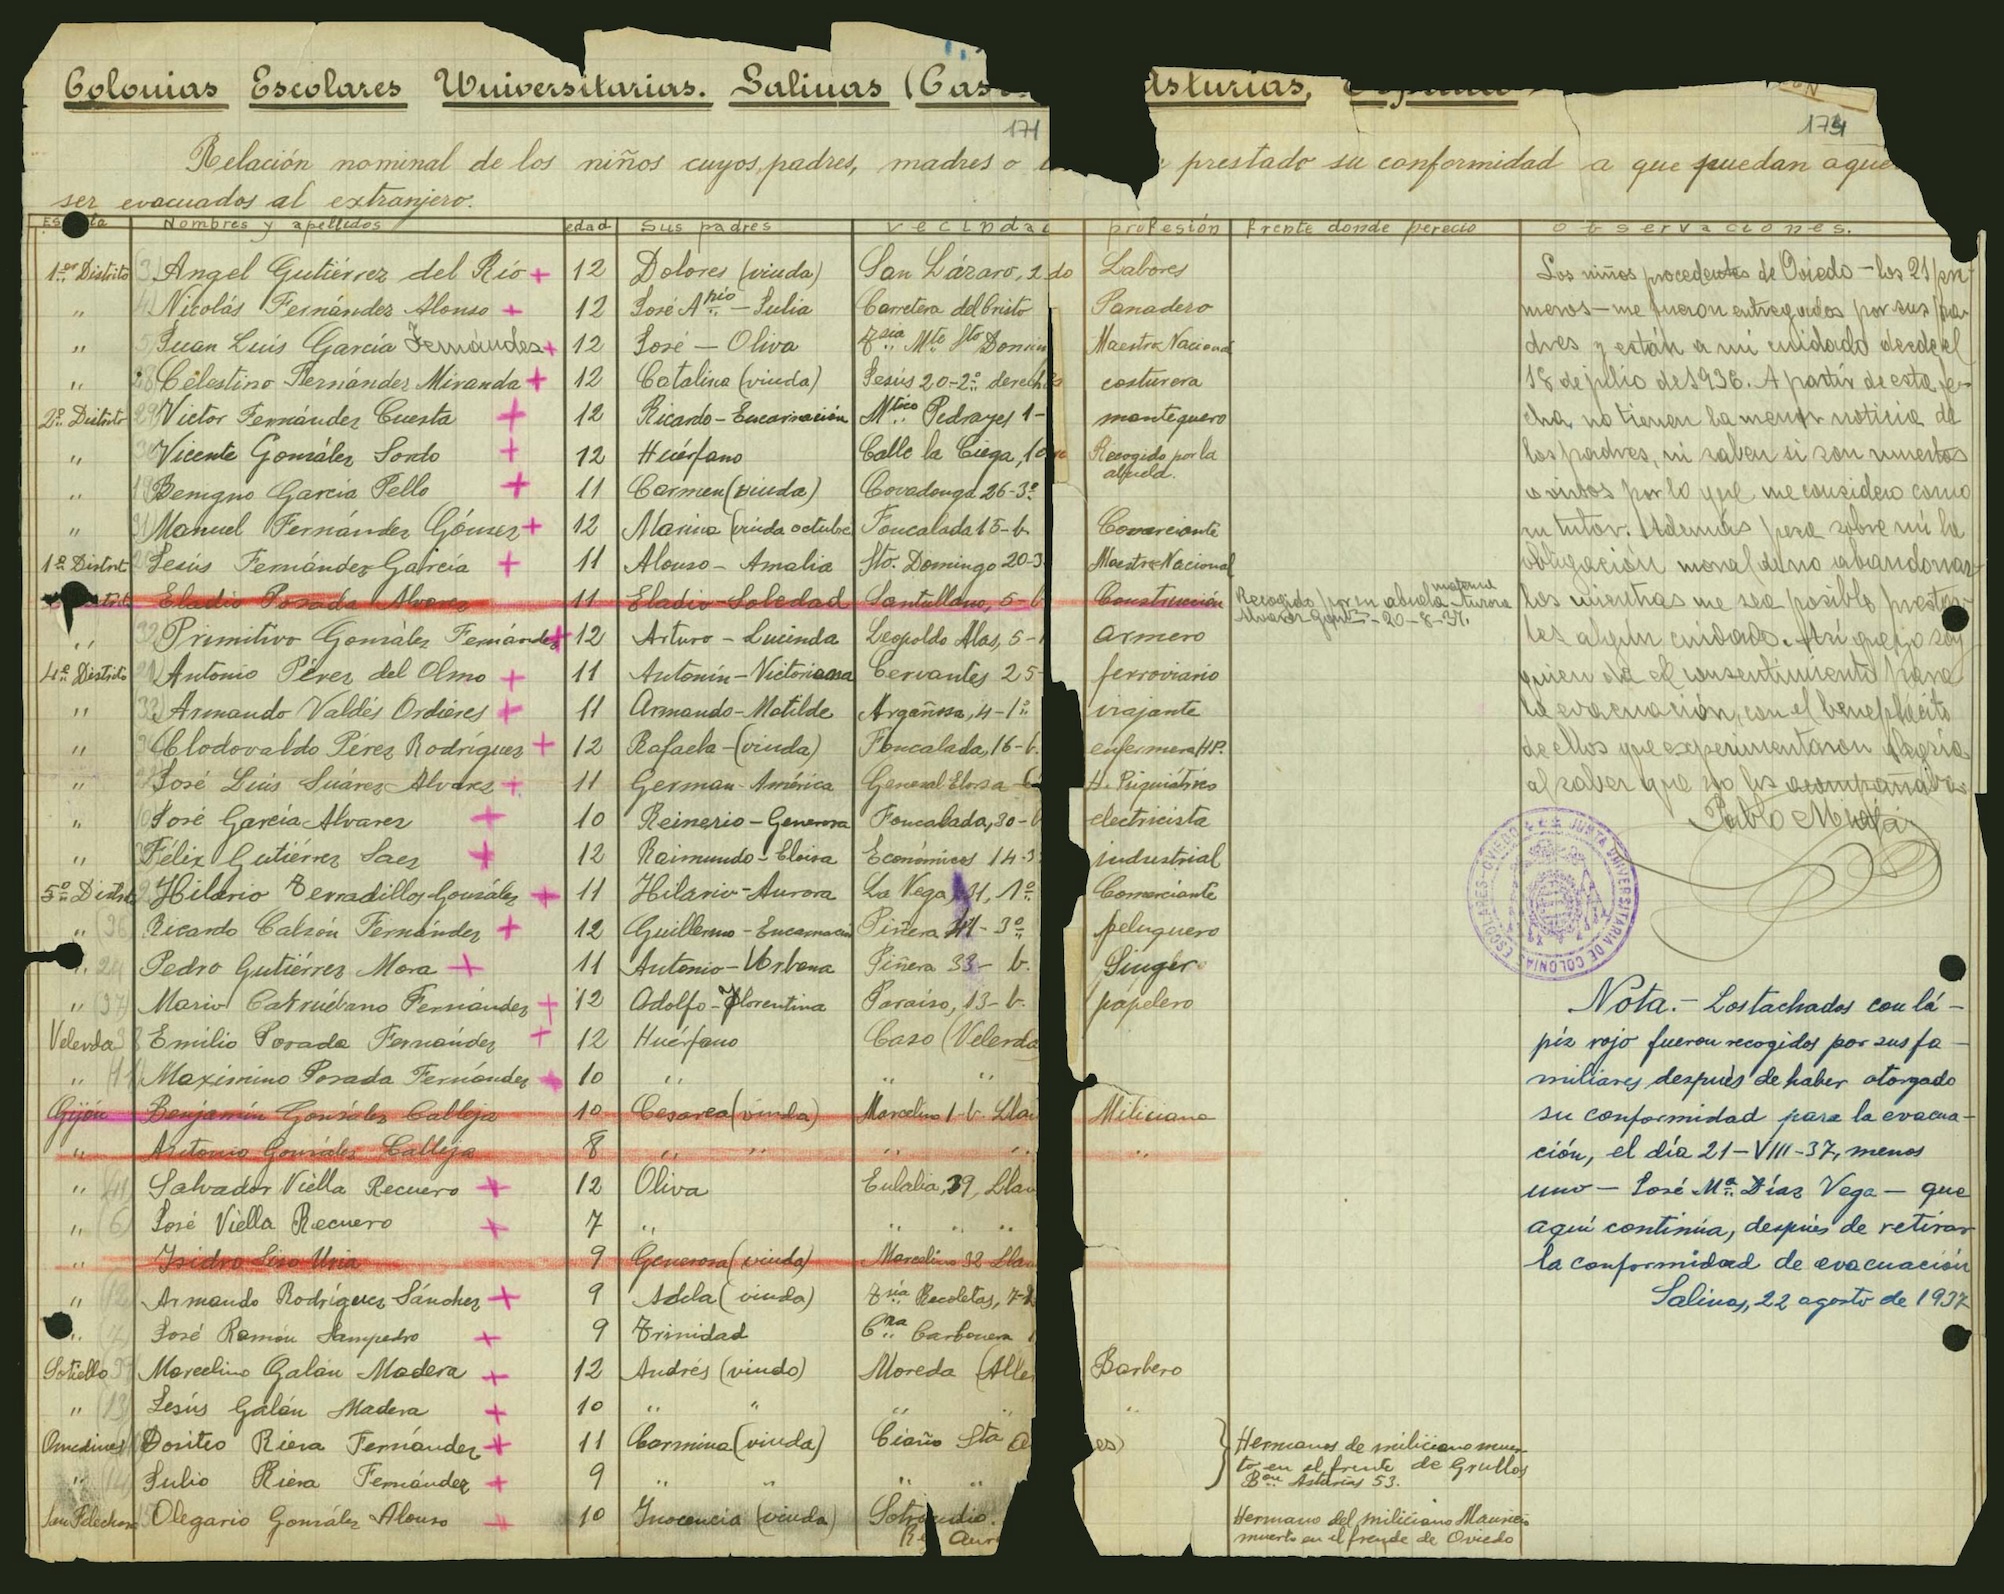 Colonias Escolares Universitarias. Salinas (Cas Asturias,
171 174
Relación nominal de los niños cuyos padres, madres o prestado su conformidad a que puedan aque
ser evacuados al extranjero.
Nombres y apellidos edad Sus padres vecindad profesión frente donde pereció observaciones.
1er Distrito Angel Gutiérrez del Río + 12 Dolores (viuda) San Lázaro, 2 do Labores
" Nicolás Fernández Alonso + 12 José Anio - Julia Carretera del Cristo Panadero
" Juan Luis García Fernández + 12 José - Oliva Mto Sto Domin Maestro Nacional
" Celestino Fernández Miranda + 12 Catalina (viuda) Jesús 20-2º derecha costurera
2º Distrito Victor Fernández Cuesta + 12 Ricardo - Encarnación Pedrayes 1- mantequero
" Vicente González Sordo + 12 Huérfano Calle la Ciega, Recogido por la
abuela.
" Benigno García Pello + 11 Carmen (viuda) Covadonga 26-3º
" Manuel Fernández Gómez + 12 Marina (viuda octubre Foncalada 15-b. Comerciante
1º Distrit Jesús Fernández García + 11 Alonso - Amalia Sto. Domingo 20-3 Maestro Nacional
Eladio Posada Alvarez 11 Eladio - Soledad Santullano, 5-b Construcción Recogido por su abuela materna
20-8-37.
" Primitivo González Fernández + 12 Arturo - Lucinda Leopoldo Alas, 5- armero
4º Distrito Antonio Pérez del Olmo + 11 Antonín - Victoriana Cervantes 25- ferroviario
" Armando Valdés Ordieres + 11 Armando - Matilde Argañosa, 4-1º viajante
" Clodovaldo Pérez Rodríguez + 12 Rafaela - (viuda) Foncalada, 16-b. enfermera H.P.
" José Luis Suárez Alvarez + 11 German - América General Elorza H. Psiquiátrico
" José García Alvarez + 10 Reinerio - Generosa Foncalada, 30-b electricista
" Félix Gutiérrez Saez + 12 Raimundo - Eloisa Económicos 14-3 industrial
5º Distrit Hilario Terradillos González + 11 Hilario - Aurora La Vega 1º Comerciante
" (36) Ricardo Calzón Fernández + 12 Guillermo - Encarnación Piñera 41-3º peluquero
" 24 Pedro Gutiérrez Mora + 11 Antonio - Urbana Piñera 33- b. Singer
" (37) Mario Fernández + 12 Adolfo - Florentina Paraíso, 13-b. papelero
Velerda Emilio Posada Fernández + 12 Huérfano Caso (Velerda
" Maximino Posada Fernández + 10 " " "
Gijón Benjamín González Calleja 10 Cesarea (viuda) Marcelino 1-b Llan Miliciano
" Antonio González Calleja 8 " " " " "
" Salvador Viella Recuero + 12 Oliva Eulalia, 39, Llan
" (6) José Viella Recuero + 7 " " " "
" Isidro Seso Uria 9 Generosa (viuda) Marcelino 32 Llan
" (12) Armando Rodríguez Sánchez + 9 Adela (viuda) Recoletas, 7-
" José Ramón Sampedro + 9 Trinidad Carbonera
Sotiello Marcelino Galán Madera + 12 Andrés (viudo) Moreda (Alle Barbero
" (13) Jesús Galán Madera + 10 " " " " "
Dositeo Riera Fernández + 11 Carmina (viuda) Ciaño Sta es) Hermanos de miliciano muer-
to en el frente de Grullos
Bon Asturias 53.
" (14) Julio Riera Fernández + 9 " " " "
Olegario González Alonso 10 Inocencia (viuda) Hermano del miliciano Mauricio
muerto en el frente de Oviedo
Los niños procedentes de Oviedo - los 21 pri-
meros - me fueron entregados por sus pa-
dres y están a mi cuidado desde el
18 de julio de 1936. A partir de esta fe-
cha no tienen la menor noticia de
los padres, ni saben si son muertos
o vivos por lo que me considero como
su tutor. Además pesa sobre mí la
obligación moral de no abandonar
los mientras me sea posible prestar
les algún cuidado. Así que yo soy
quien da el consentimiento para
la evacuación, con el beneplácito
de ellos que experimentaron alegría
al saber que yo les acompañaba.
Pablo Miaja
JUNTA UNIVERSITARIA DE COLONIAS ESCOLARES - OVIEDO
Nota.- Los tachados con lá-
piz rojo fueron recogidos por sus fa-
miliares después de haber otorgado
su conformidad para la evacua-
ción, el día 21-VIII-37, menos
uno - José Mª Díaz Vega - que
aquí continúa, después de retirar
la conformidad de evacuación
Salinas, 22 agosto de 1937